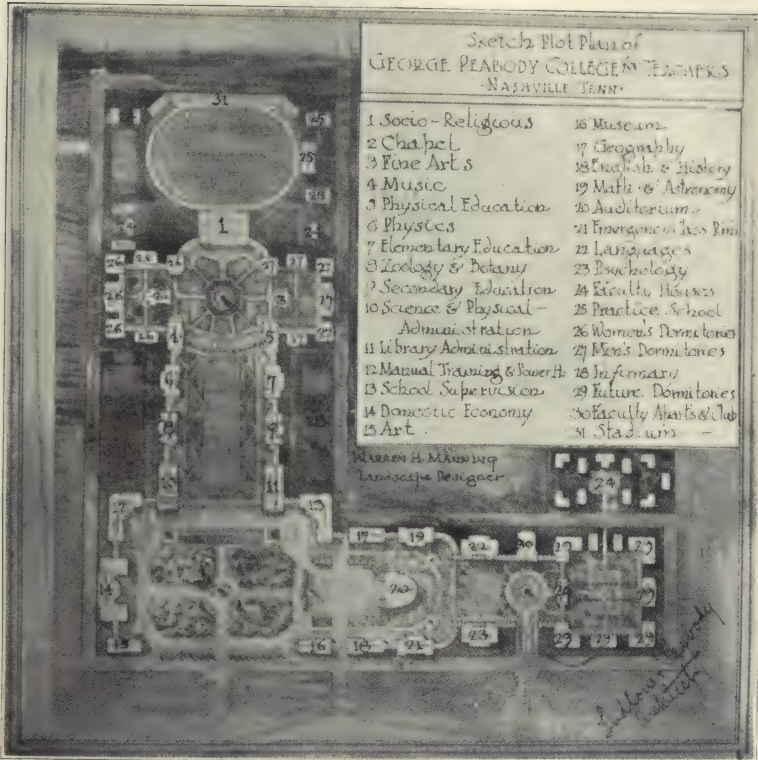 Sketch Plot Plan of
GEORGE PEABODY COLLEGE for TEACHERS
·NASHVILLE TENN·
1 Socio-Religious
2 Chapel
3 Fine Arts
4 Music
5 Physical Education
6 Physics
7 Elementary Education
8 Zoology & Botany
9 Secondary Education
10 Science & Physical-
Administration
11 Library Administration
12 Manual Training & Power H.
13 School Supervision
14 Domestic Economy
15 Art
16 Museum
17 Geography
18 English & History
19 Math & Astronomy
20 Auditorium
21 Emergency Class Rm
22 Languages
23 Psychology
24 Faculty Houses
25 Practice School
26 Women's Dormitories
27 Men's Dormitories
28 Infirmary
29 Future Dormitories
30 Faculty Aparts & Club
31 Stadium
WARREN H. MANNING
Landscape Designer
31
25
25
25
1
24
24
26
26
27
27
27
26
3
27
26
26
27
4
5
6
7
8
9
28
10
11
12
13
24
17
19
22
30
29
29
14
20
29
15
16
18
21
23
29
29
29
Ludlow & Peabody
Architects